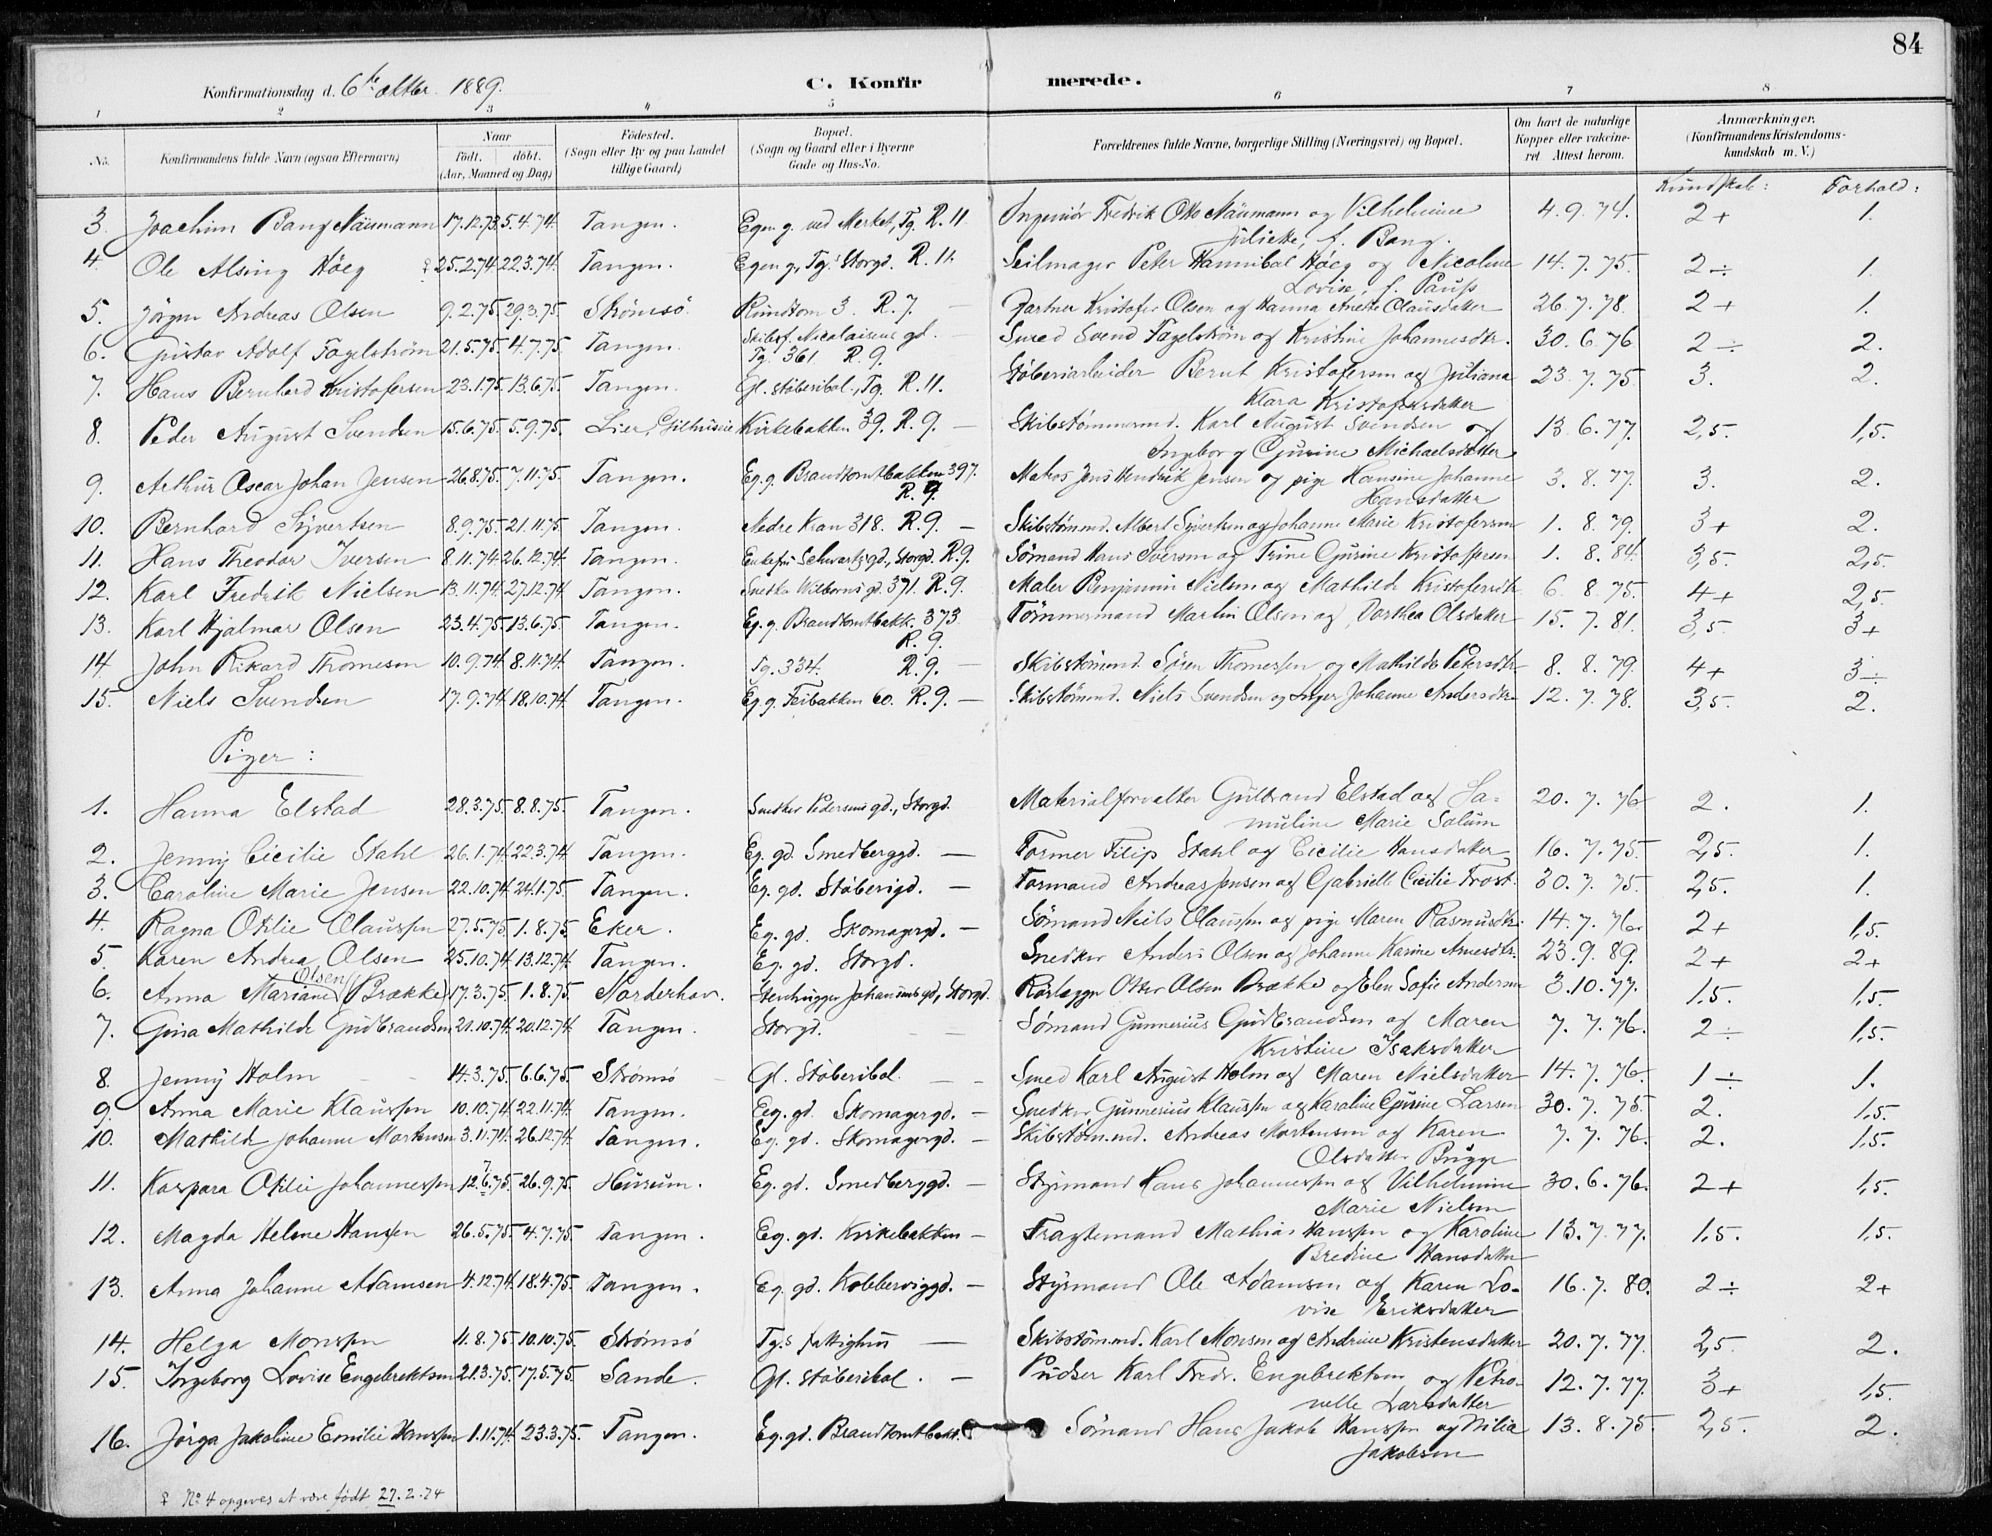 84
Konfirmationsdag d. 6te oktbr. 1889. C. Konfirmerede.
1 2 3 4 5 6 7 8
No. Konfirmandens fulde Navn (ogsaa Efternavn) Naar født. døbt. (Aar, Maaned og Dag) Fødested. (Sogn eller By og paa Landet tillige Gaard) Bopæl. (Sogn og Gaard eller i Byerne Gade og Hus-No. Forældrenes fulde Navne, borgerlige Stilling (Næringsvei) og Bopæl. Om havt de naturlige Kopper eller vakcineret Attest herom. Anmærkninger, (Konfirmandens Kristendomskundskab m. V.)
Kundskab: Forhold:
3. Joachim Bang Näumann 17.12.73. 5.4.74. Tangen. Egen g. ved Merket, Tg. R. 11. Ingeniør Fredrik Otto Näumann og Vilhelmine 4.9.74. 2+ 1.
Juliette, f. Bang.
4. Ole Alsing Höeg ♀ 25.2.74. 22.3.74. Tangen. Egen g., Tg.s Storgd. R. 11. Seilmager Peter Hannibal Höeg og Nicoline 14.7.75. 2÷ 1.
Lovise, f. Pauss
5. Jörgen Andreas Olsen 9.2.75. 29.3.75. Strömsö. Rundtom 3. R. 7. — Gartner Kristofer Olsen og Hanna Anette Clausdatter 26.7.78. 2+ 1.
6. Gustav Adolf Fagelström 21.5.75. 4.7.75. Tangen. Skibsf. Nicolaisens gd. — Smed Svend Fagelström og Kristine Johannesdtr. 30.6.76. 2÷ 2.
Tg. 361 R. 9.
7. Hans Bernhard Kristofersen 23.1.75. 13.6.75. Tangen. Gl. støberibol., Tg. R. 11. Støberiarbeider Bernt Kristofersen og Juliana 23.7.75 3. 2.
Klara Kristofersdatter
8. Peder August Svendsen 15.6.75. 5.9.75. Lier, Gilhusvie Kirkebakken 39. R. 9. — Skibstømmermd. Karl August Svendsen og 13.6.77. 2,5. 1,5.
Ingeborg Gurine Michaelsdatter
9. Arthur Oscar Johan Jensen 26.8.75. 7.11.75. Tangen. Eg. g. Brandtomtbakken 397. Matros Jens Hendrik Jensen og pige Hansine Johanne 3.8.77. 3. 2.
R. 9. Hansdatter
10. Bernhard Syvertsen 8.9.75. 21.11.75. Tangen. Nedre Kran 318. R. 9. — Skibstømmd. Albert Syvertsen og Johanne Marie Kristofersen 1.8.79. 3+ 2.
11. Hans Theodor Iversen 8.11.74. 26.12.74. Tangen. Enkefru Schwartz gd., Storgd. R. 9. Sømand Hans Iversen og Trine Gurine Kristoffersen 1.8.84. 3,5. 2,5.
12. Karl Fredrik Nielsen 13.11.74. 27.12.74 Tangen. Snedker Wilborns gd. 371. R. 9. Maler Benjamin Nielsen og Mathilde Kristofersdtr 6.8.75. 4+ 2,5.
13. Karl Hjalmar Olsen 23.4.75. 13.6.75. Tangen. Eg. g. Brandtomtbakk. 373 Tømmermand Martin Olsen og Dorthea Olsdatter 15.7.81. 3,5. 3+
R. 9.
14. John Rikard Thomesen 10.9.74. 8.11.74. Tangen. Tg. 334. R. 9. — Skibstømmd. Sören Thomessen og Mathilde Petersdtr. 8.8.79. 4+ 3÷
15. Niels Svendsen 17.9.74. 18.10.74. Tangen. Eg. g. Feibakken 60. R. 9. — Skibstømmd. Niels Svendsen og Inger Johanne Andersdtr. 12.7.78. 3,5. 2.
Piger:
1. Hanna Elstad 28.3.75. 8.8.75. Tangen. Snedker Pedersens gd., Storgd. Materialforvalter Gulbrand Elstad og Sa- 20.7.76 2. 1.
muline Marie Solum
2. Jenny Cicilie Stahl 26.1.74. 22.3.74 Tangen. Eg. gd. Smedberggd. — Former Filip Stahl og Cicilie Hansdatter 16.7.75. 2,5. 1.
3. Caroline Marie Jensen 22.10.74. 24.1.75. Tangen. Eg. gd. Støberigd. — Formand Andreas Jensen og Gabrielle Cicilie Frost. 30.7.75. 2,5. 1.
4. Ragna Otilie Claussen 27.5.75. 1.8.75. Eker. Eg. gd. Skomagergd. — Sømand Niels Claussen og pige Maren Rasmusdtr. 14.7.76. 2+ 1,5.
5. Karen Andrea Olsen 25.10.74. 13.12.74. Tangen. Eg. gd. Storgd. Snedker Anders Olsen og Johanne Karine Arnesdtr. 23.9.89. 2+ 2+
6. Anna Mariane Olsen (Brække) 17.3.75. 1.8.75. Norderhov. Stenhugger Johansens gd., Storgd. Rørlægger Otter Olsen Brække og Elen Sofie Andersen 3.10.77. 1,5. 1,5.
7. Gina Mathilde Gudbrandsen 21.10.74. 20.12.74. Tangen. Storgd. Sømand Gunnerius Gudbrandsen og Maren 7.7.76. 2÷ 1,5.
Kristine Isaksdatter
8. Jenny Holm 14.3.75. 6.6.75. Strömsö Gl. Støberibol. — Smed Karl August Holm og Maren Nielsdatter 14.7.76. 1÷ 1.
9. Anna Marie Klaussen 10.10.74. 22.11.74. Tangen. Eg. gd. Skomagergd. — Snedker Gunnerius Klaussen og Karoline Gurine Larsen 30.7.75. 2. 1,5.
10. Mathilde Johanne Mortensen 3.11.74. 26.12.74. Tangen. Eg. gd. Skomagergd. — Skibstøm.md. Andreas Mortensen og Karen 7.7.76. 2. 1,5.
Olsdatter Brügge
11. Kaspara Otilie Johannessen 12.6.75. 7 26.9.75. Husum. Eg. gd. Smedberggd. — Styrmand Hans Johannessen og Vilhelmine 30.6.76. 2+ 1,5.
Marie Nielsen
12. Magda Helene Hanssen 26.5.75. 4.7.75. Tangen. Eg. gd. Kirkebakken — Fragtemand Mathias Hanssen og Karoline 13.7.77. 1,5. 1,5.
Bredine Hansdatter
13. Anna Johanne Adamsen 4.12.74. 18.4.75. Tangen. Eg. gd. Kobberviggd. — Styrmand Ole Adamsen og Karen Lo- 16.7.80. 2÷ 2+
vise Eriksdatter
14. Helga Monssen 11.8.75. 10.10.75. Strömsö Tg.s fattighus — Skibstøm.md. Karl Monsen og Andrine Kristensdatter 20.7.77. 2,5. 2.
15. Ingeborg Lovise Engebrektsen 21.3.75. 17.5.75. Sande. Gl. støberibol. — Pudser Karl Fredr. Engebrektsen og Petro- 12.7.77. 3+ 1,5.
nelle Larsdatter
16. Jörga Jakobine Emilie Hanssen 1.11.74. 23.3.75. Tangen. Eg. gd. Brandtomtbakk. Sømand Hans Jakob Hanssen og Nilia 13.8.75. 2,5. 2.
Jakobsen
♀ No 4 opgives at være født 27.2.74